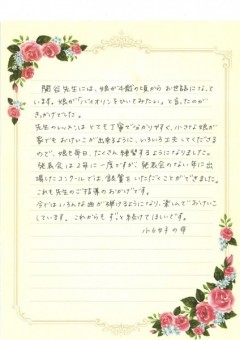 関谷先生には、娘が4歳の頃からお世話になって
います。娘が「バイオリンをひいてみたい」と言ったのが
きっかけでした。
先生のレッスンはとても丁寧で分かりやすく、小さな娘が
家でもおけいこが出来るように、いろいろ工夫してくださる
ので、娘も毎日、たくさん練習するようになりました。
発表会は2年に一度ですが、発表会のない年に出
場したコンクールでは、銀賞をいただくことができました。
これも先生のご指導のおかげです。
今ではいろんな曲が弾けるようになり、楽しんでおけいこ
しています。これからもずっと続けてほしいです。
小6女子の母